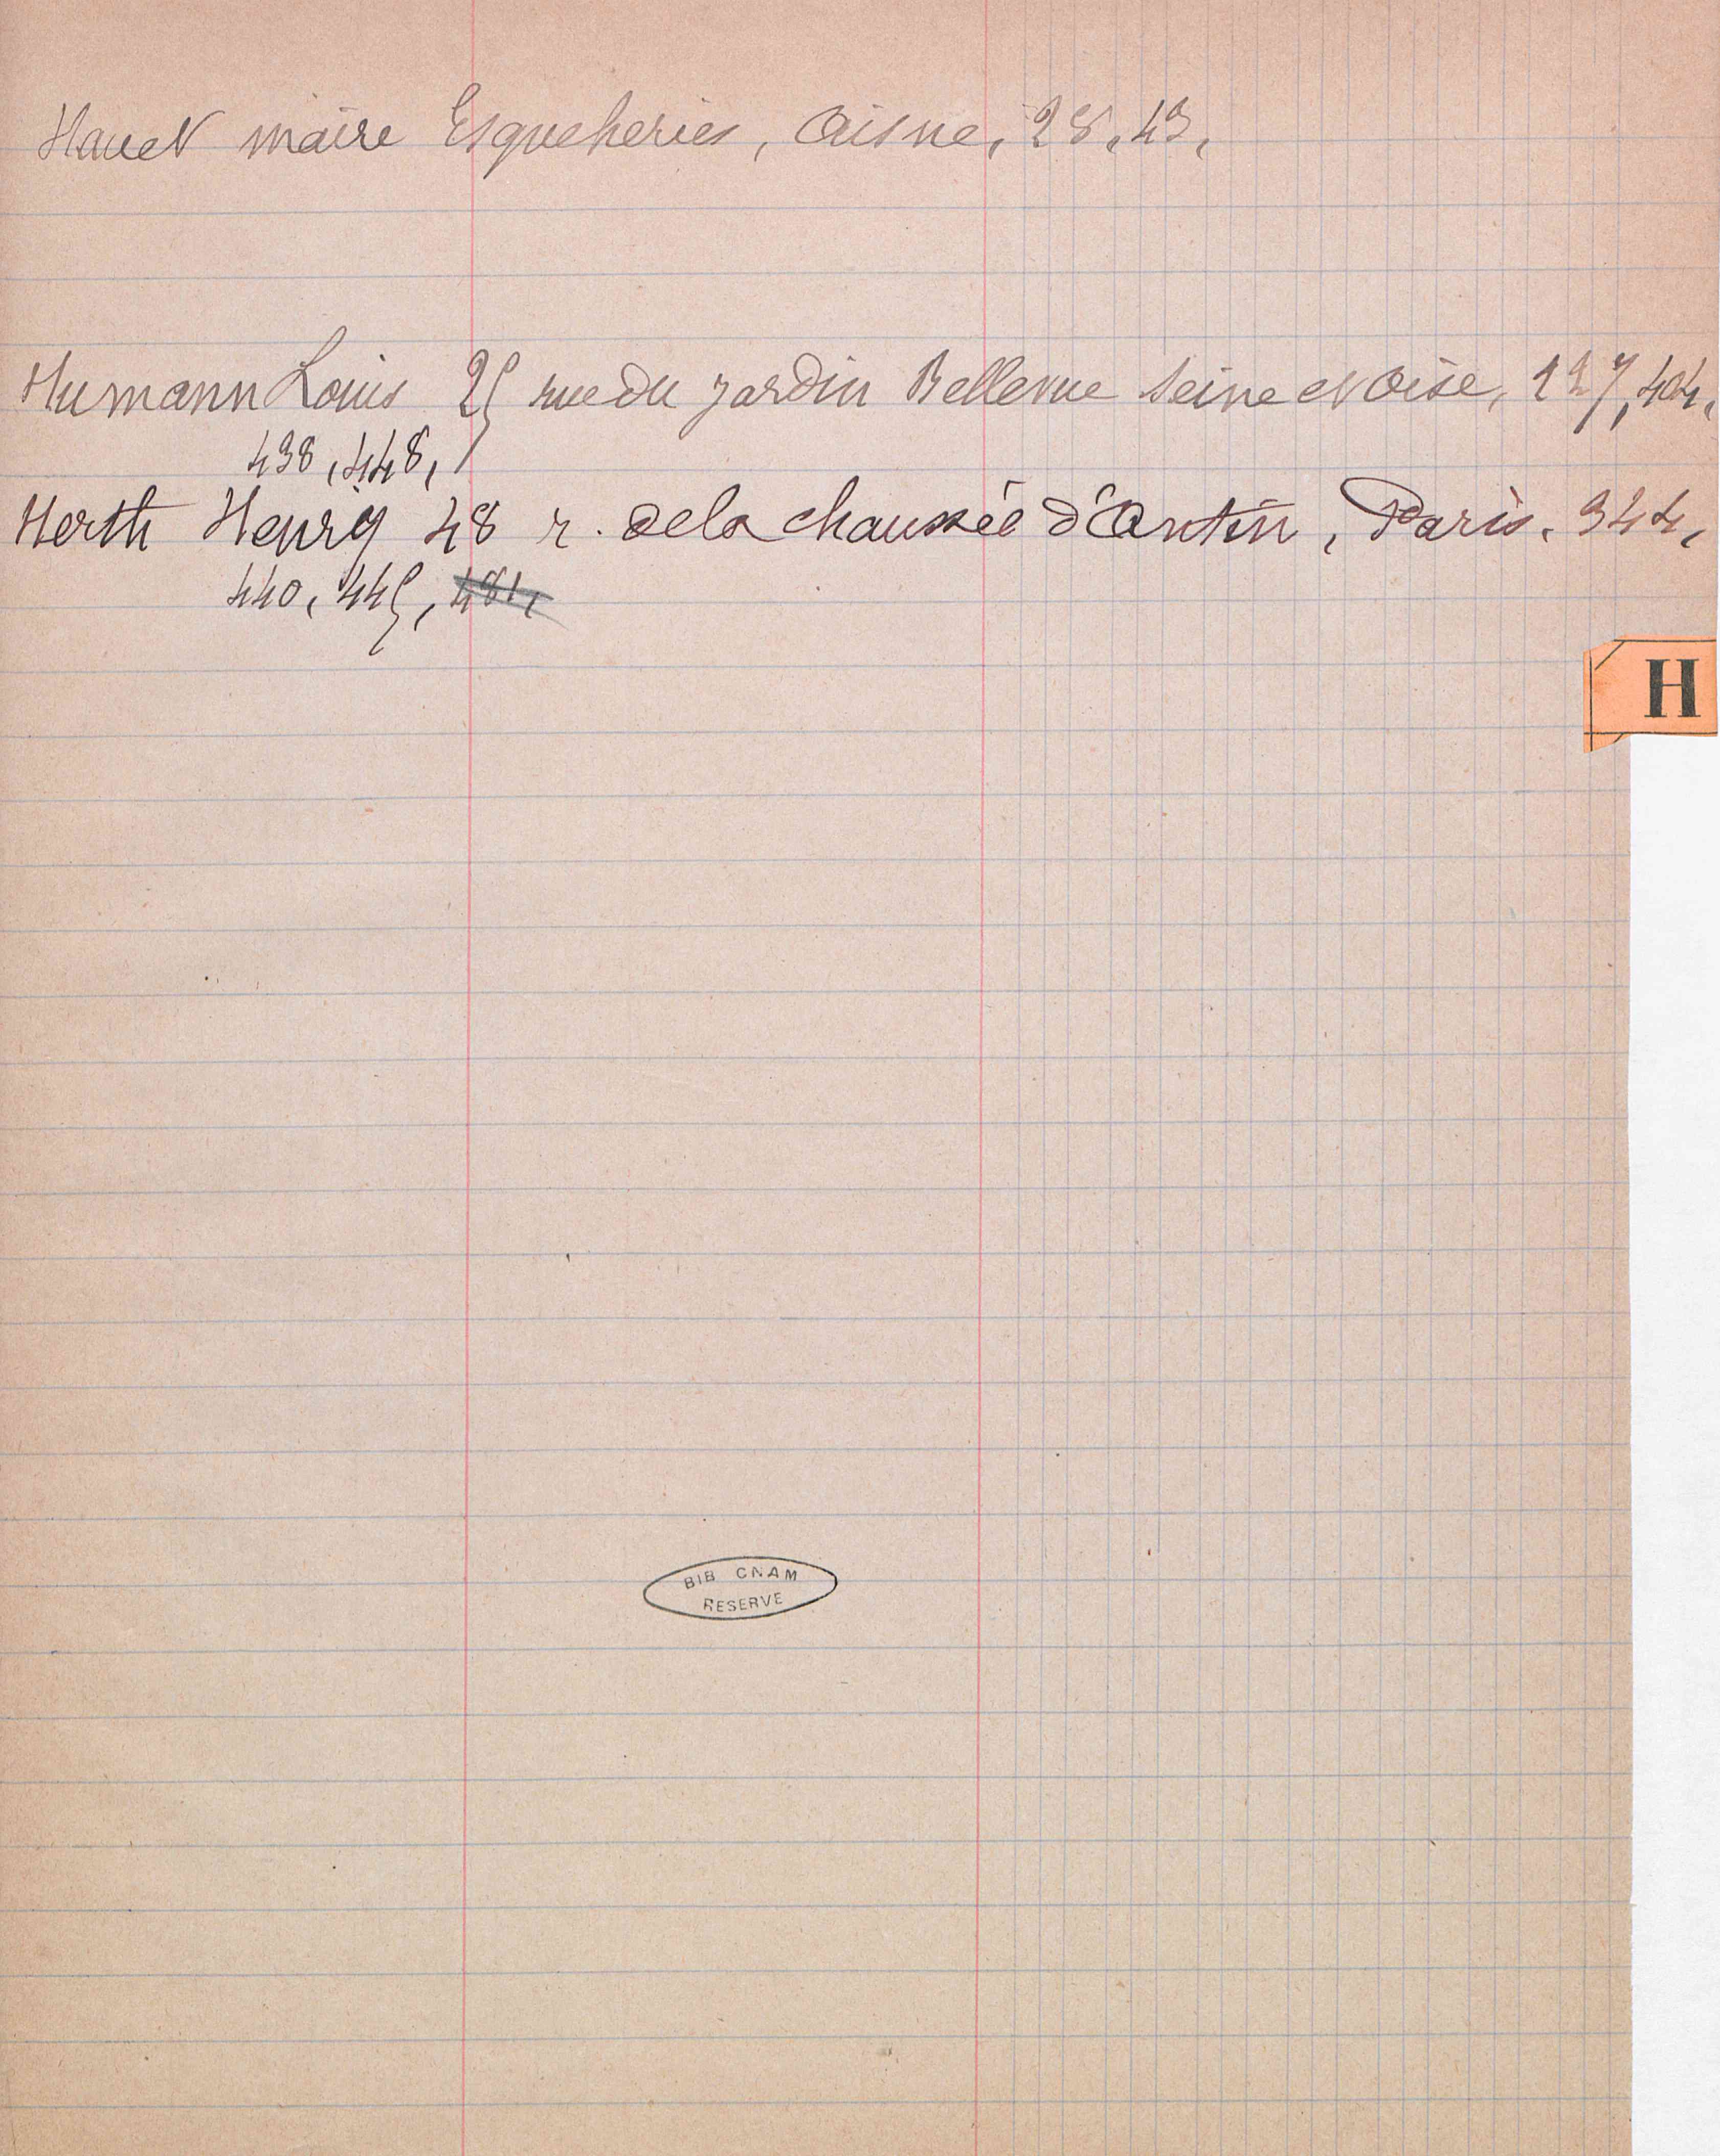 Hauet maire Esqueheries, Aisne, 28, 43,
Humann Louis 25 rue du jardin Bellevue Seine et Oise, 127, 404,
438, 448,
Herth Henry 48 r. de la chaussée d'Antin, Paris. 344,
440, 445, 481,
H
BIB CNAM
RESERVE